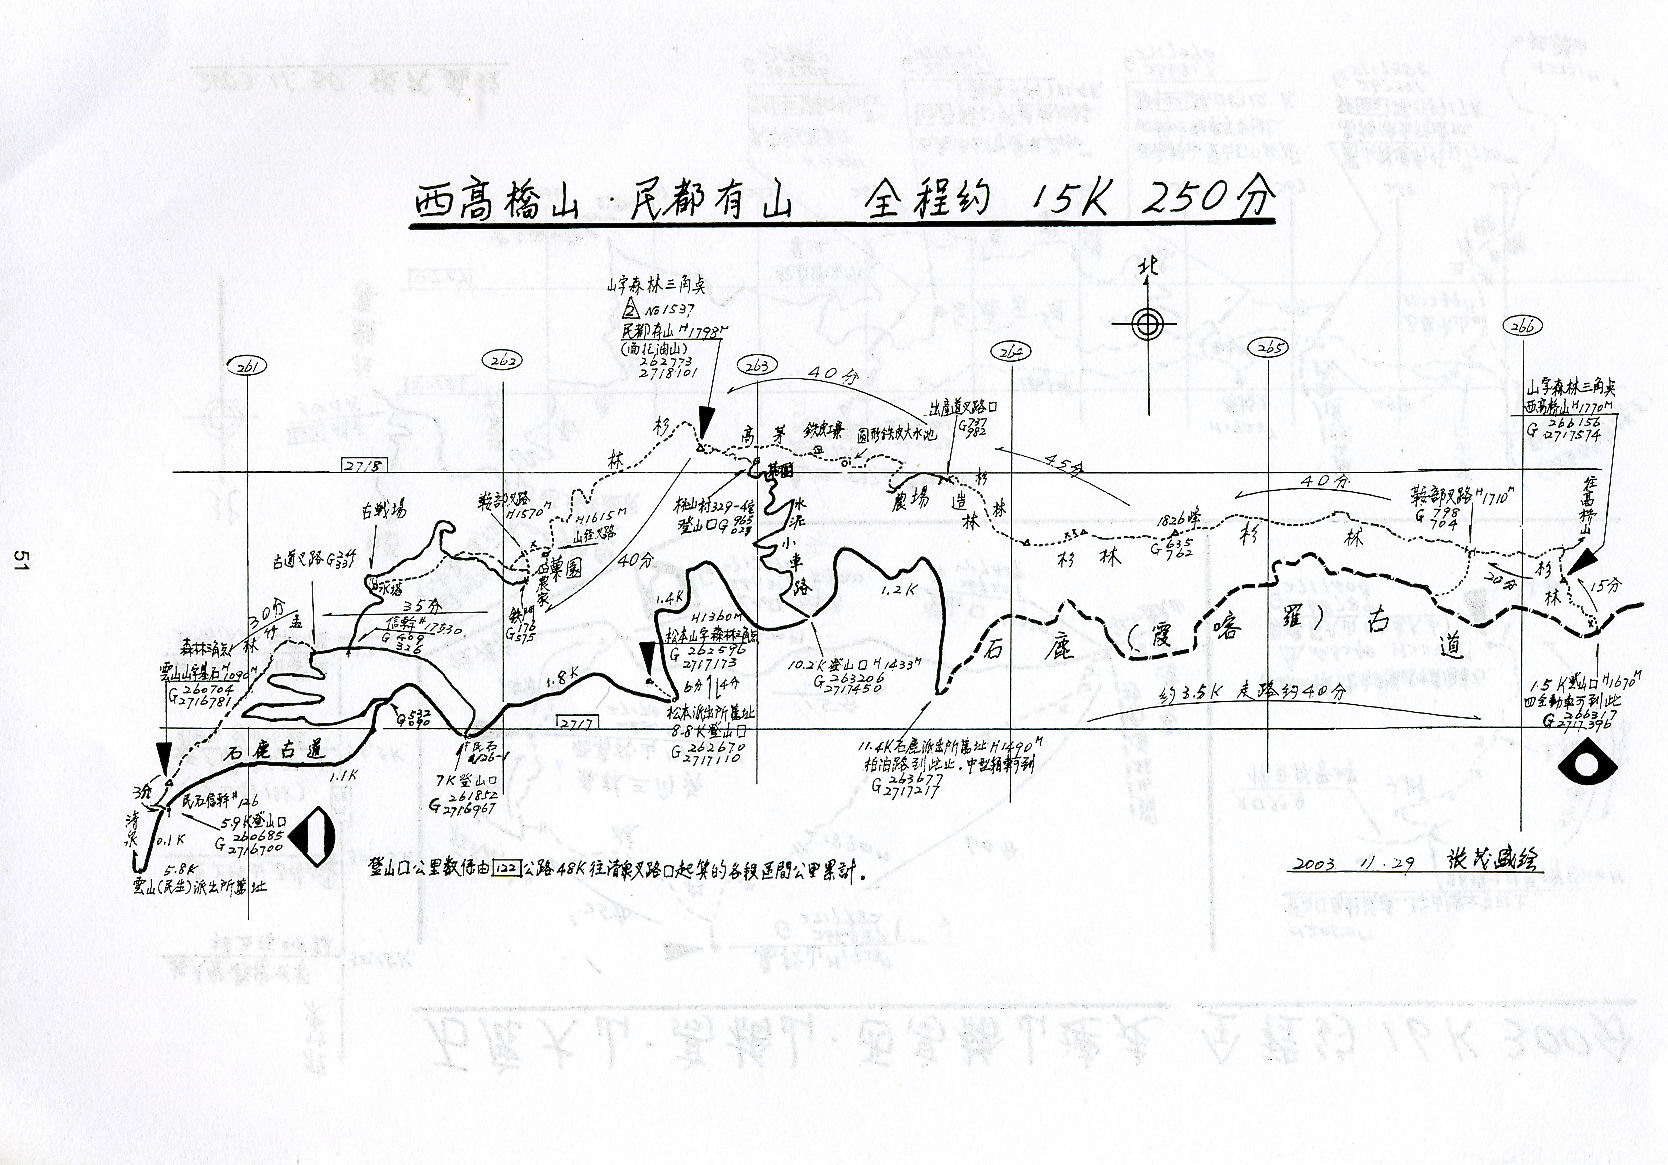 西高橋山·民都有山 全程約 15K 250分
北
山字森林三角点
2 No1537
民都有山 H1798M
(高比油山)
262773
2718101
261
262
263
264
265
266
40分
出產道叉路口
G 797
982
山字森林三角点
西高橋山 H1770M
G 266156
2717574
2718
杉
林
高茅
圓形鉄皮大水池
農場
造
林
杉
林
45分
40分
1826峰
G 635
762
杉林
杉
林
鞍部叉路 H1710M
G 798
704
往高橋山
20分
杉
林
15分
古戰場
鞍部叉路
H1570M
H1615M
山徑叉路
桃山村329-4号
登山口 G 965
028
菓園
水泥小車路
古道叉路 G 334
337
水塔
菓園
農家
鉄門
G 176
575
40分
30分
竹
林
35分
信幹#17530
G 409
326
森林三角点
雲山山字基石 H1090M
G 260704
2716781
1.4K
H1360M
松本山字森林三角点
G 262596
2717173
6分 4分
松本派出所舊址
8.8K登山口
G 262670
2717110
1.2K
10.2K登山口 H1433M
G 263206
2717450
1.8K
2717
石鹿(霞喀羅)古道
約3.5K 走路約40分
11.4K石鹿派出所舊址 H1490M
柏油路到此止.中型輛車可到
G 263677
2717217
15K登山口 H1670M
四全動車可到此
G 266317
2717396
G 532
090
石鹿古道
1.1K
民石
#126-1
7K登山口
G 261852
2716967
3分
民石信幹#126
5.9K登山口
G 260685
2716700
清泉
0.1K
5.8K
雲山(民生)派出所舊址
登山口公里數係由122公路48K往清泉叉路口起算的各段區間公里累計.
2003 11.29 張茂盛绘
51